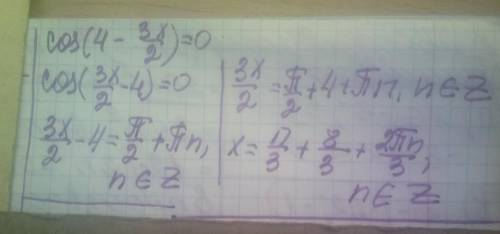 cos(4 - 3x/2) = 0
cos(3x/2 - 4) = 0
3x/2 - 4 = π/2 + πn,
n ∈ Z
3x/2 = π/2 + 4 + πn, n ∈ Z
x = π/3 + 8/3 + 2πn/3,
n ∈ Z